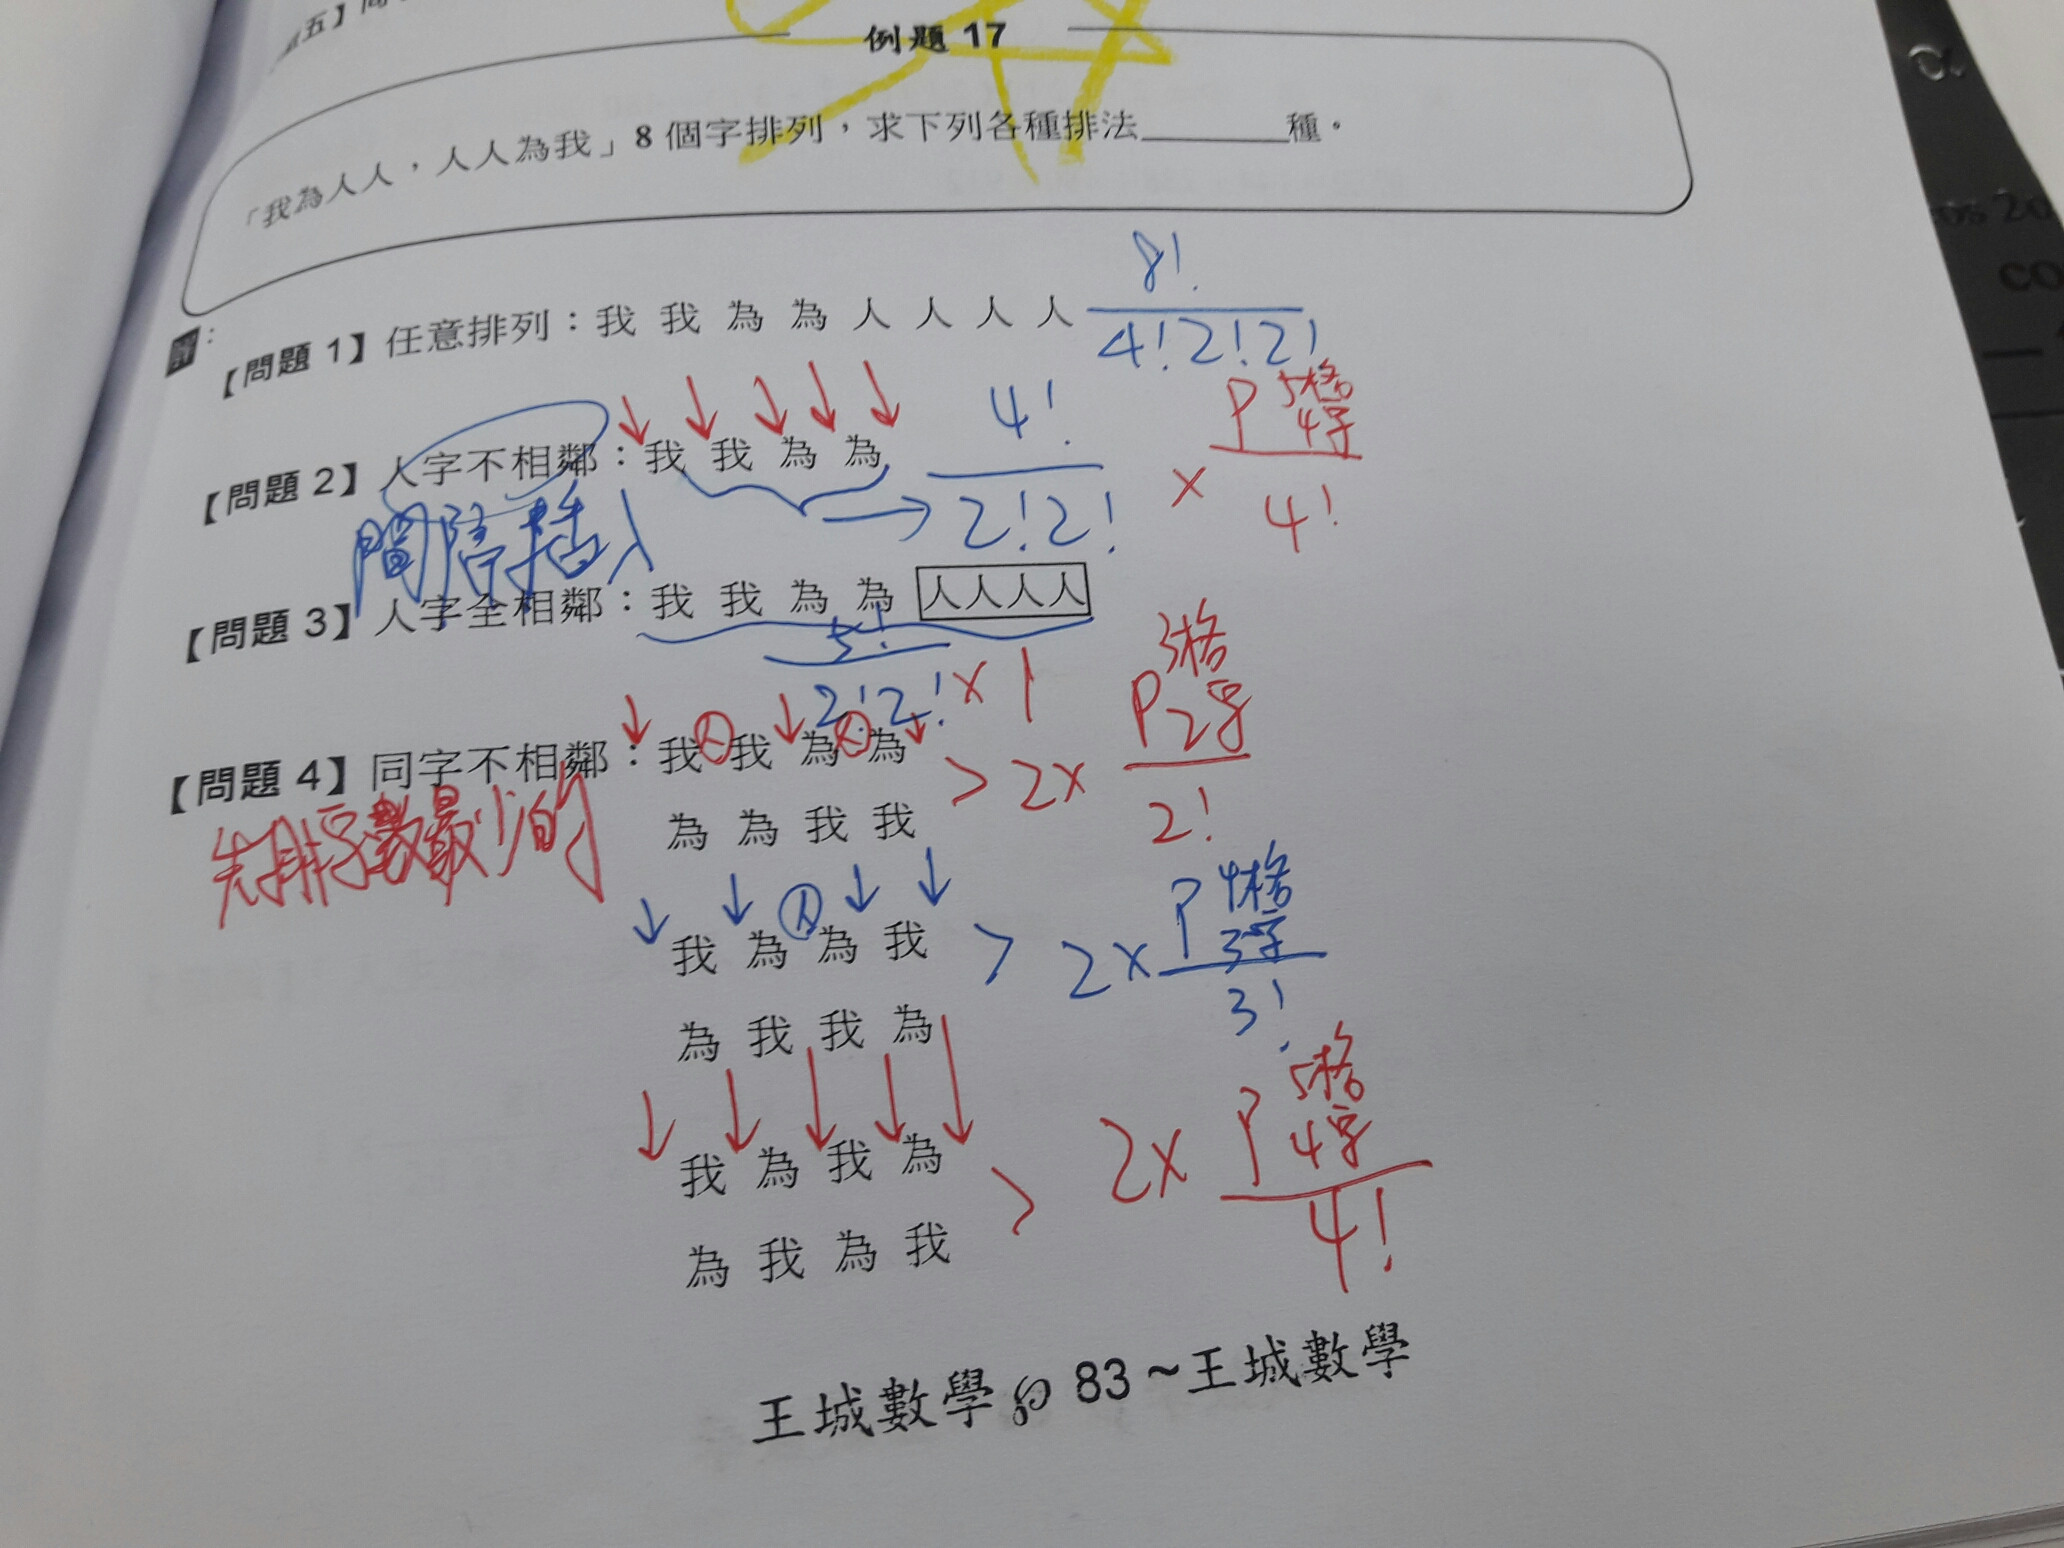 例題 17
「我為人人，人人為我」8 個字排列，求下列各種排法______種。
【問題 1】任意排列：我 我 為 為 人 人 人 人 8! / 4!2!2!
【問題 2】人字不相鄰：我 我 為 為 → 4! / 2!2! × P 5格 4字 / 4!
間隔插入
【問題 3】人字全相鄰：我 我 為 為 人人人人
5! / 2!2! × 1
【問題 4】同字不相鄰：我 人 我 為 人 為 > 2× P 3格 2字 / 2!
先排字數最少的
為 為 我 我
我 為 人 為 我 > 2× P 4格 3字 / 3!
為 我 我 為
我 為 我 為 > 2× P 5格 4字 / 4!
為 我 為 我
王城數學 ℘ 83 ~ 王城數學
α
cos 20
co